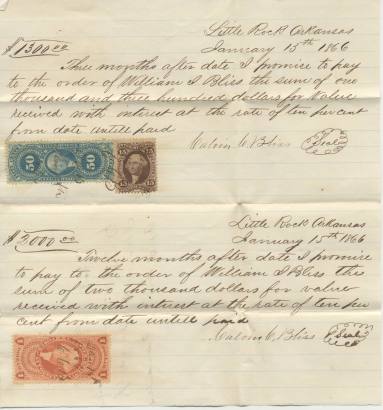 Little Rock Arkansas
$1300.00 January 15th 1866
Three months after date I promise to pay
to the order of William I Bliss the sum of one
thousand and three hundred dollars for value
received with interest at the rate of ten per cent
from date untill paid
Calvin C. Bliss Seal
50 50
15 15
Little Rock Arkansas
$2000.00 January 15th 1866
Twelve months after date I promise
to pay to the order of William I Bliss the
sum of two thousand dollars for value
received with interest at the rate of ten per
cent from date untill paid
Calvin C. Bliss Seal
1 1